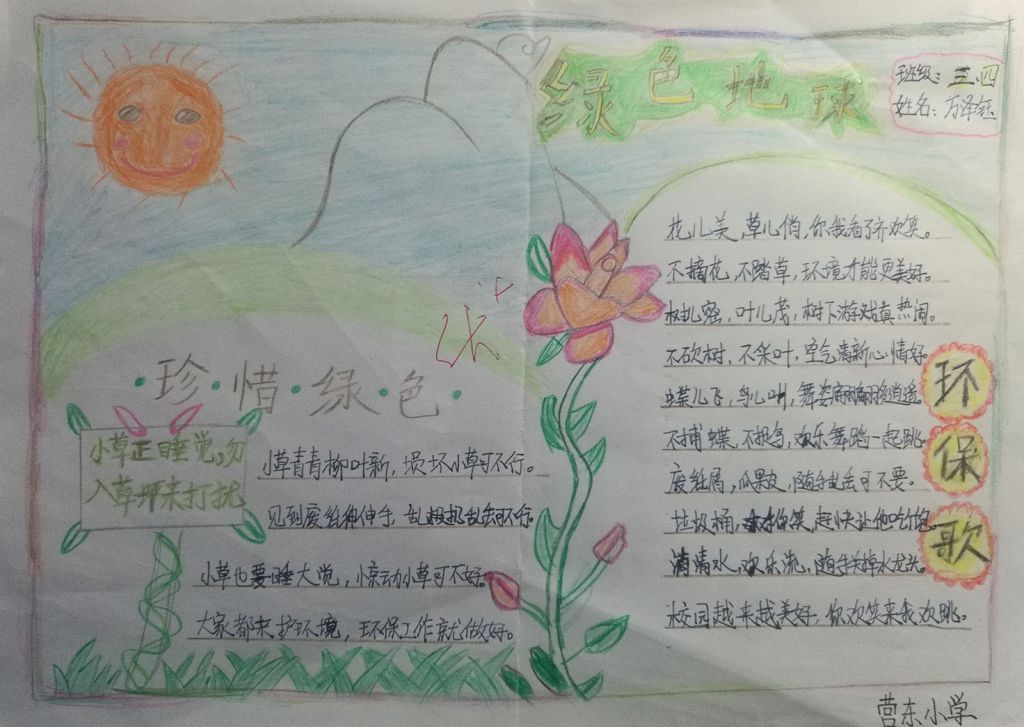 绿色地球
班级：三.四
姓名：万泽钰
·珍·惜·绿·色·
小草正睡觉,勿
入草坪来打扰
小草青青柳叶新，损坏小草可不行。
见到废纸伸伸手，乱扔乱丢可不行。
小草也要睡大觉，惊动小草可不好。
大家都来护环境，环保工作就做好。
环保歌
花儿美，草儿俏，你我看了齐欢笑。
不摘花，不踏草，环境才能更美好。
树儿密，叶儿茂，树下游戏真热闹。
不砍树，不采叶，空气清新心情好。
蝶儿飞，鸟儿叫，舞姿翩翩逍遥
不捕蝶，不捉鸟，欢乐舞蹈一起跳。
废纸屑，瓜果皮，随手乱丢可不要。
垃圾桶，笑，赶快让他吃饱。
清清水，欢乐流，随手关掉水龙头。
校园越来越美好，你欢笑来我欢跳。
营东小学